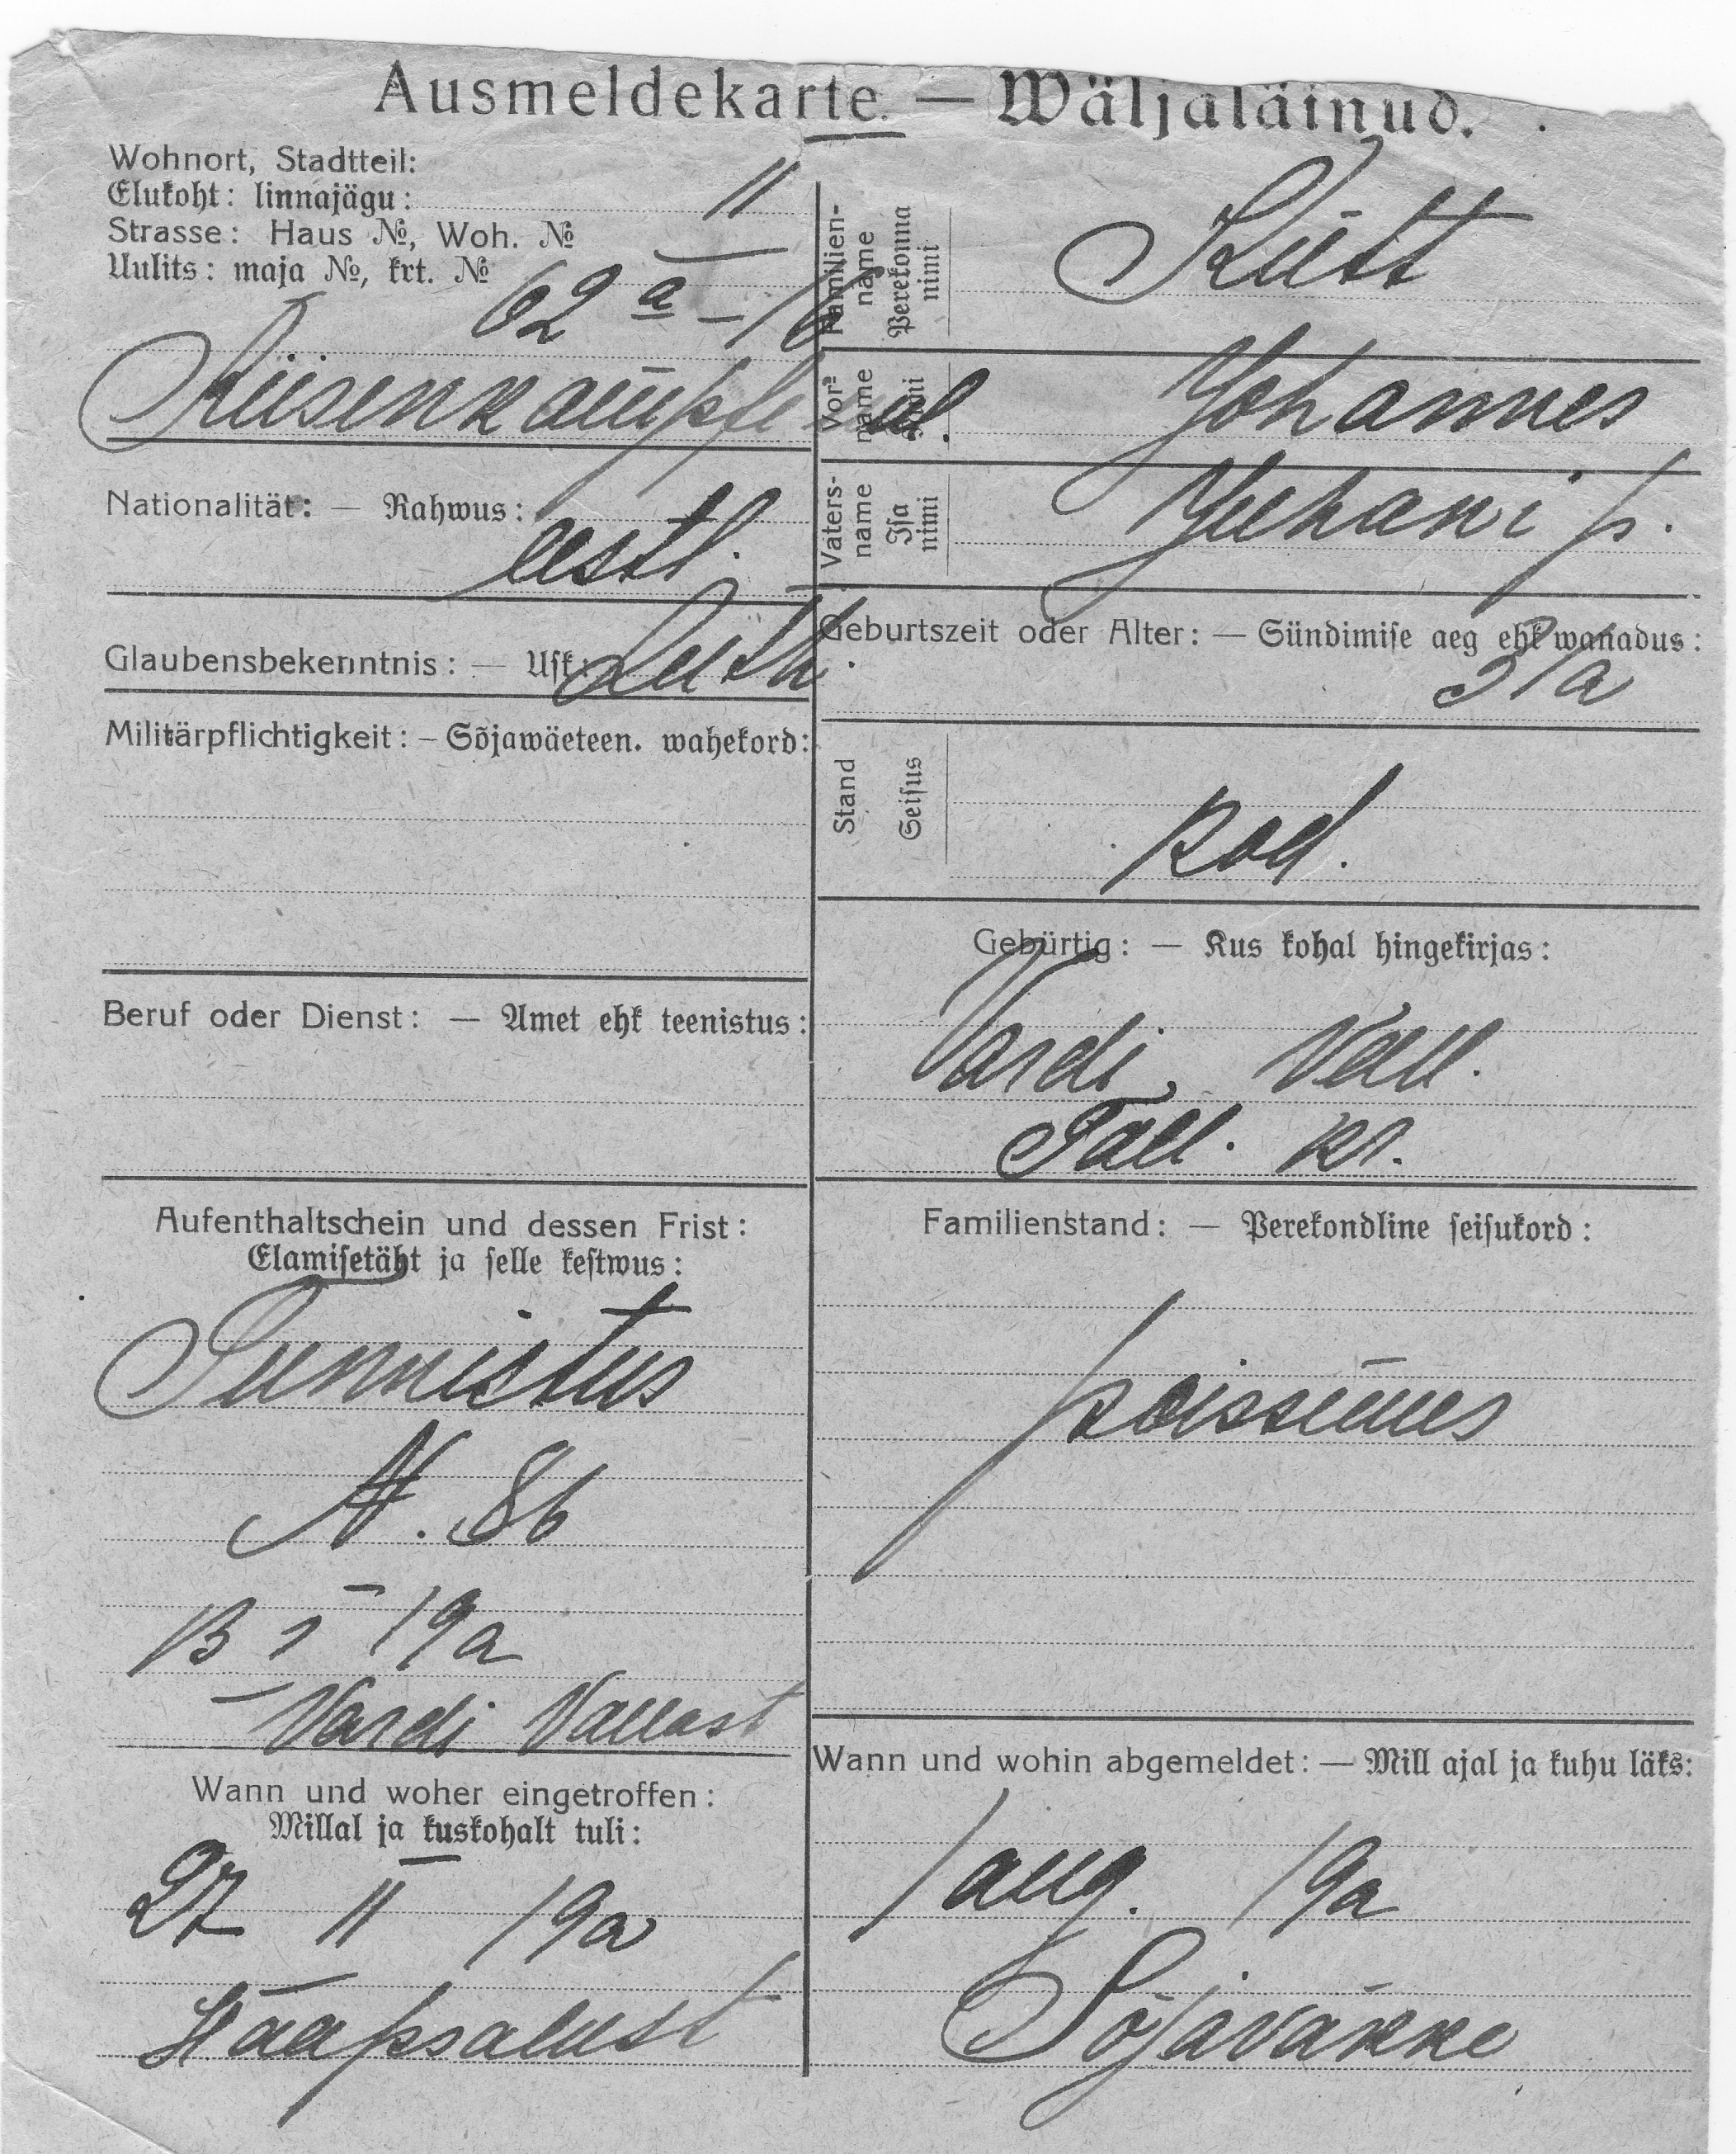 Ausmeldekarte. — Wäljaläinud.
Wohnort, Stadtteil:
Elukoht: linnajägu: II
Strasse: Haus №, Woh. №
Uulits: maja №, krt. №
62 a – 16
Riisenkampfe
Nationalität: — Rahwus:
eestl.
Glaubensbekenntnis: — Usk: Luth.
Militärpflichtigkeit: – Sõjawäeteen. wahekord:
Beruf oder Dienst: — Amet ehk teenistus:
Aufenthaltschein und dessen Frist:
Elamisetäht ja selle kestwus:
Tunnistus
N. 86
13 I 19a
Vardi Vallast
Wann und woher eingetroffen:
Millal ja kuskohalt tuli:
27 II 19a
Haapsalust
Familien-
name
Perekonna
nimi
Kütt
Vor-
name
Nimi
Johannes
Vaters-
name
Isa
nimi
Juhani p.
Geburtszeit oder Alter: — Sündimise aeg ehk wanadus:
31a
Stand
Seisus
kod.
Gebürtig: — Kus kohal hingekirjas:
Vardi Vall.
Tall. kr.
Familienstand: — Perekondline seisukord:
poissmees
Wann und wohin abgemeldet: — Mill ajal ja kuhu läks:
1 aug. 19a
Sõjaväkke